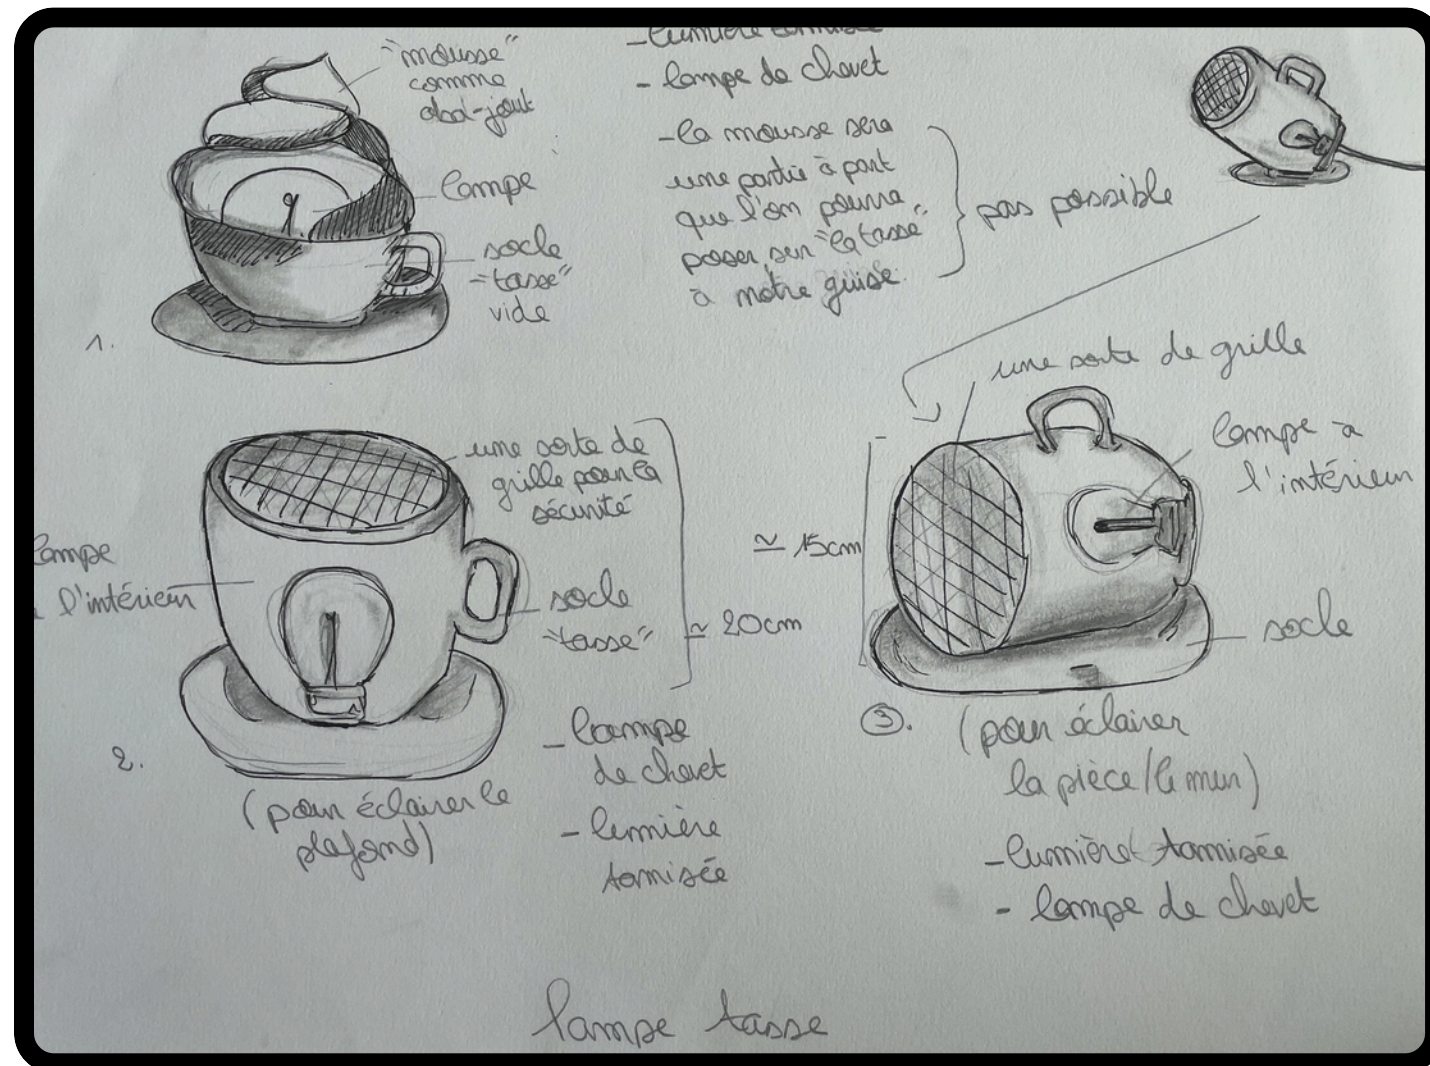 "mousse"
comme
abat-jour
lampe
socle
"tasse"
vide
1.
-lumière tamisée
- lampe de chevet
-la mousse sera
une partie à part
que l'on pourra
poser sur "la tasse"
à notre guise.
pas possible
une sorte de
grille pour la
sécurité
lampe
l'intérieur
socle
"tasse"
≃ 20cm
2.
(pour éclairer le
plafond)
- lampe
de chevet
- lumière
tamisée
une sorte de grille
lampe à
l'intérieur
≃ 15cm
socle
3.
(pour éclairer
la pièce/le mur)
-lumière tamisée
- lampe de chevet
lampe tasse